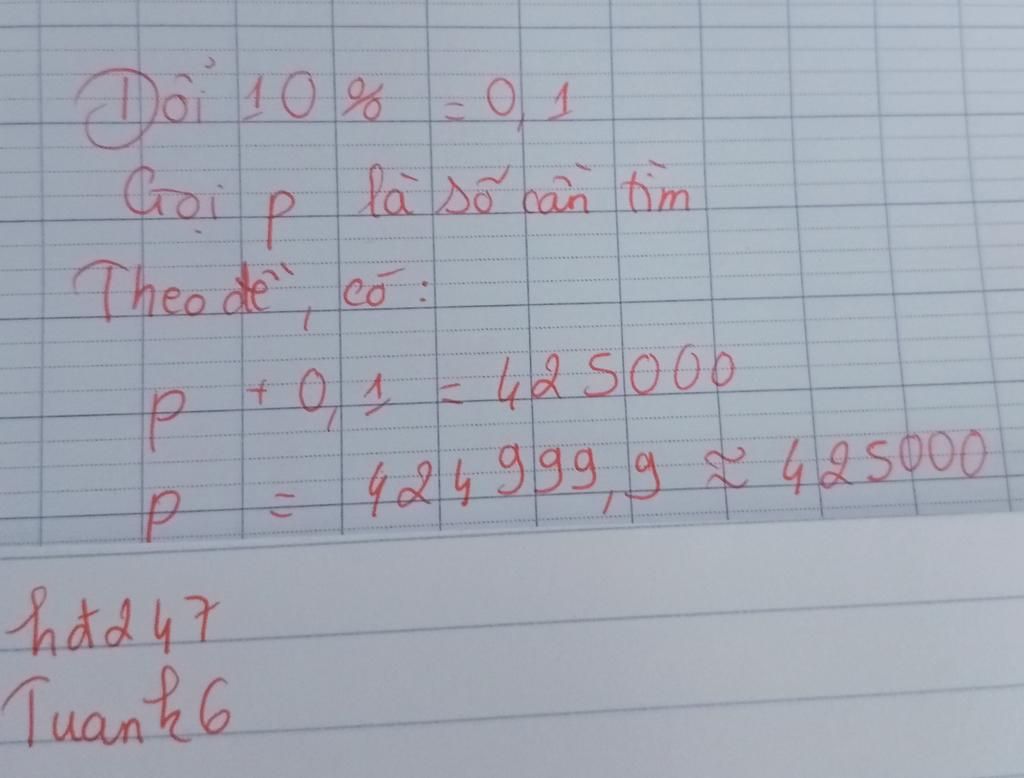 Đổi 10 % = 0,1
Gọi p là số cần tìm
Theo đề, có:
p + 0,1 = 425000
p = 424999,9 ≈ 425000
hđ247
Tuanh6